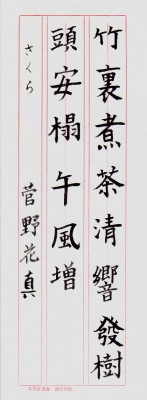 竹裏煮茶清響發樹
頭安榻午風増
さくら
菅野花真